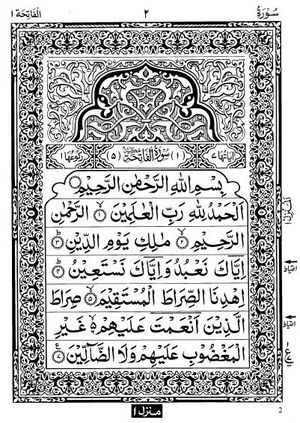 سُورَة ٢ الْفَاتِحَة ١
اٰيَاتُهَا ٧ (١) سُوْرَةُ الْفَاتِحَةِ مَكِّيَّةٌ (٥) رُكُوْعُهَا ١
بِسْمِ اللّٰهِ الرَّحْمٰنِ الرَّحِيْمِ
اَلْحَمْدُ لِلّٰهِ رَبِّ الْعٰلَمِيْنَ ۙ﴿۱﴾ الرَّحْمٰنِ
الرَّحِيْمِ ۙ﴿۲﴾ مٰلِكِ يَوْمِ الدِّيْنِ ؕ﴿۳﴾
اِيَّاكَ نَعْبُدُ وَاِيَّاكَ نَسْتَعِيْنُ ؕ﴿۴﴾
اِهْدِنَا الصِّرَاطَ الْمُسْتَقِيْمَ ۙ﴿۵﴾ صِرَاطَ
الَّذِيْنَ اَنْعَمْتَ عَلَيْهِمْ ۙ﴿۶﴾ غَيْرِ
الْمَغْضُوْبِ عَلَيْهِمْ وَلَا الضَّآلِّيْنَ ﴿۷﴾
منزل ١
2